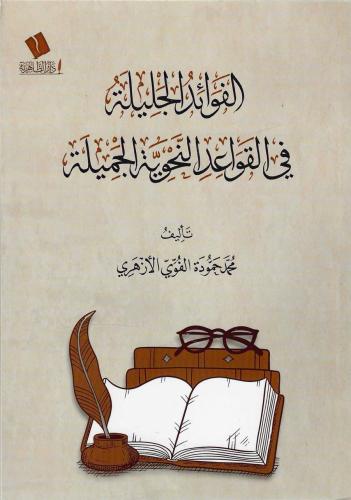 دار الظاهرية
الفوائد الجليلة
في القواعد النحوية الجميلة
تأليف
محمد حمودة الفوي الأزهري